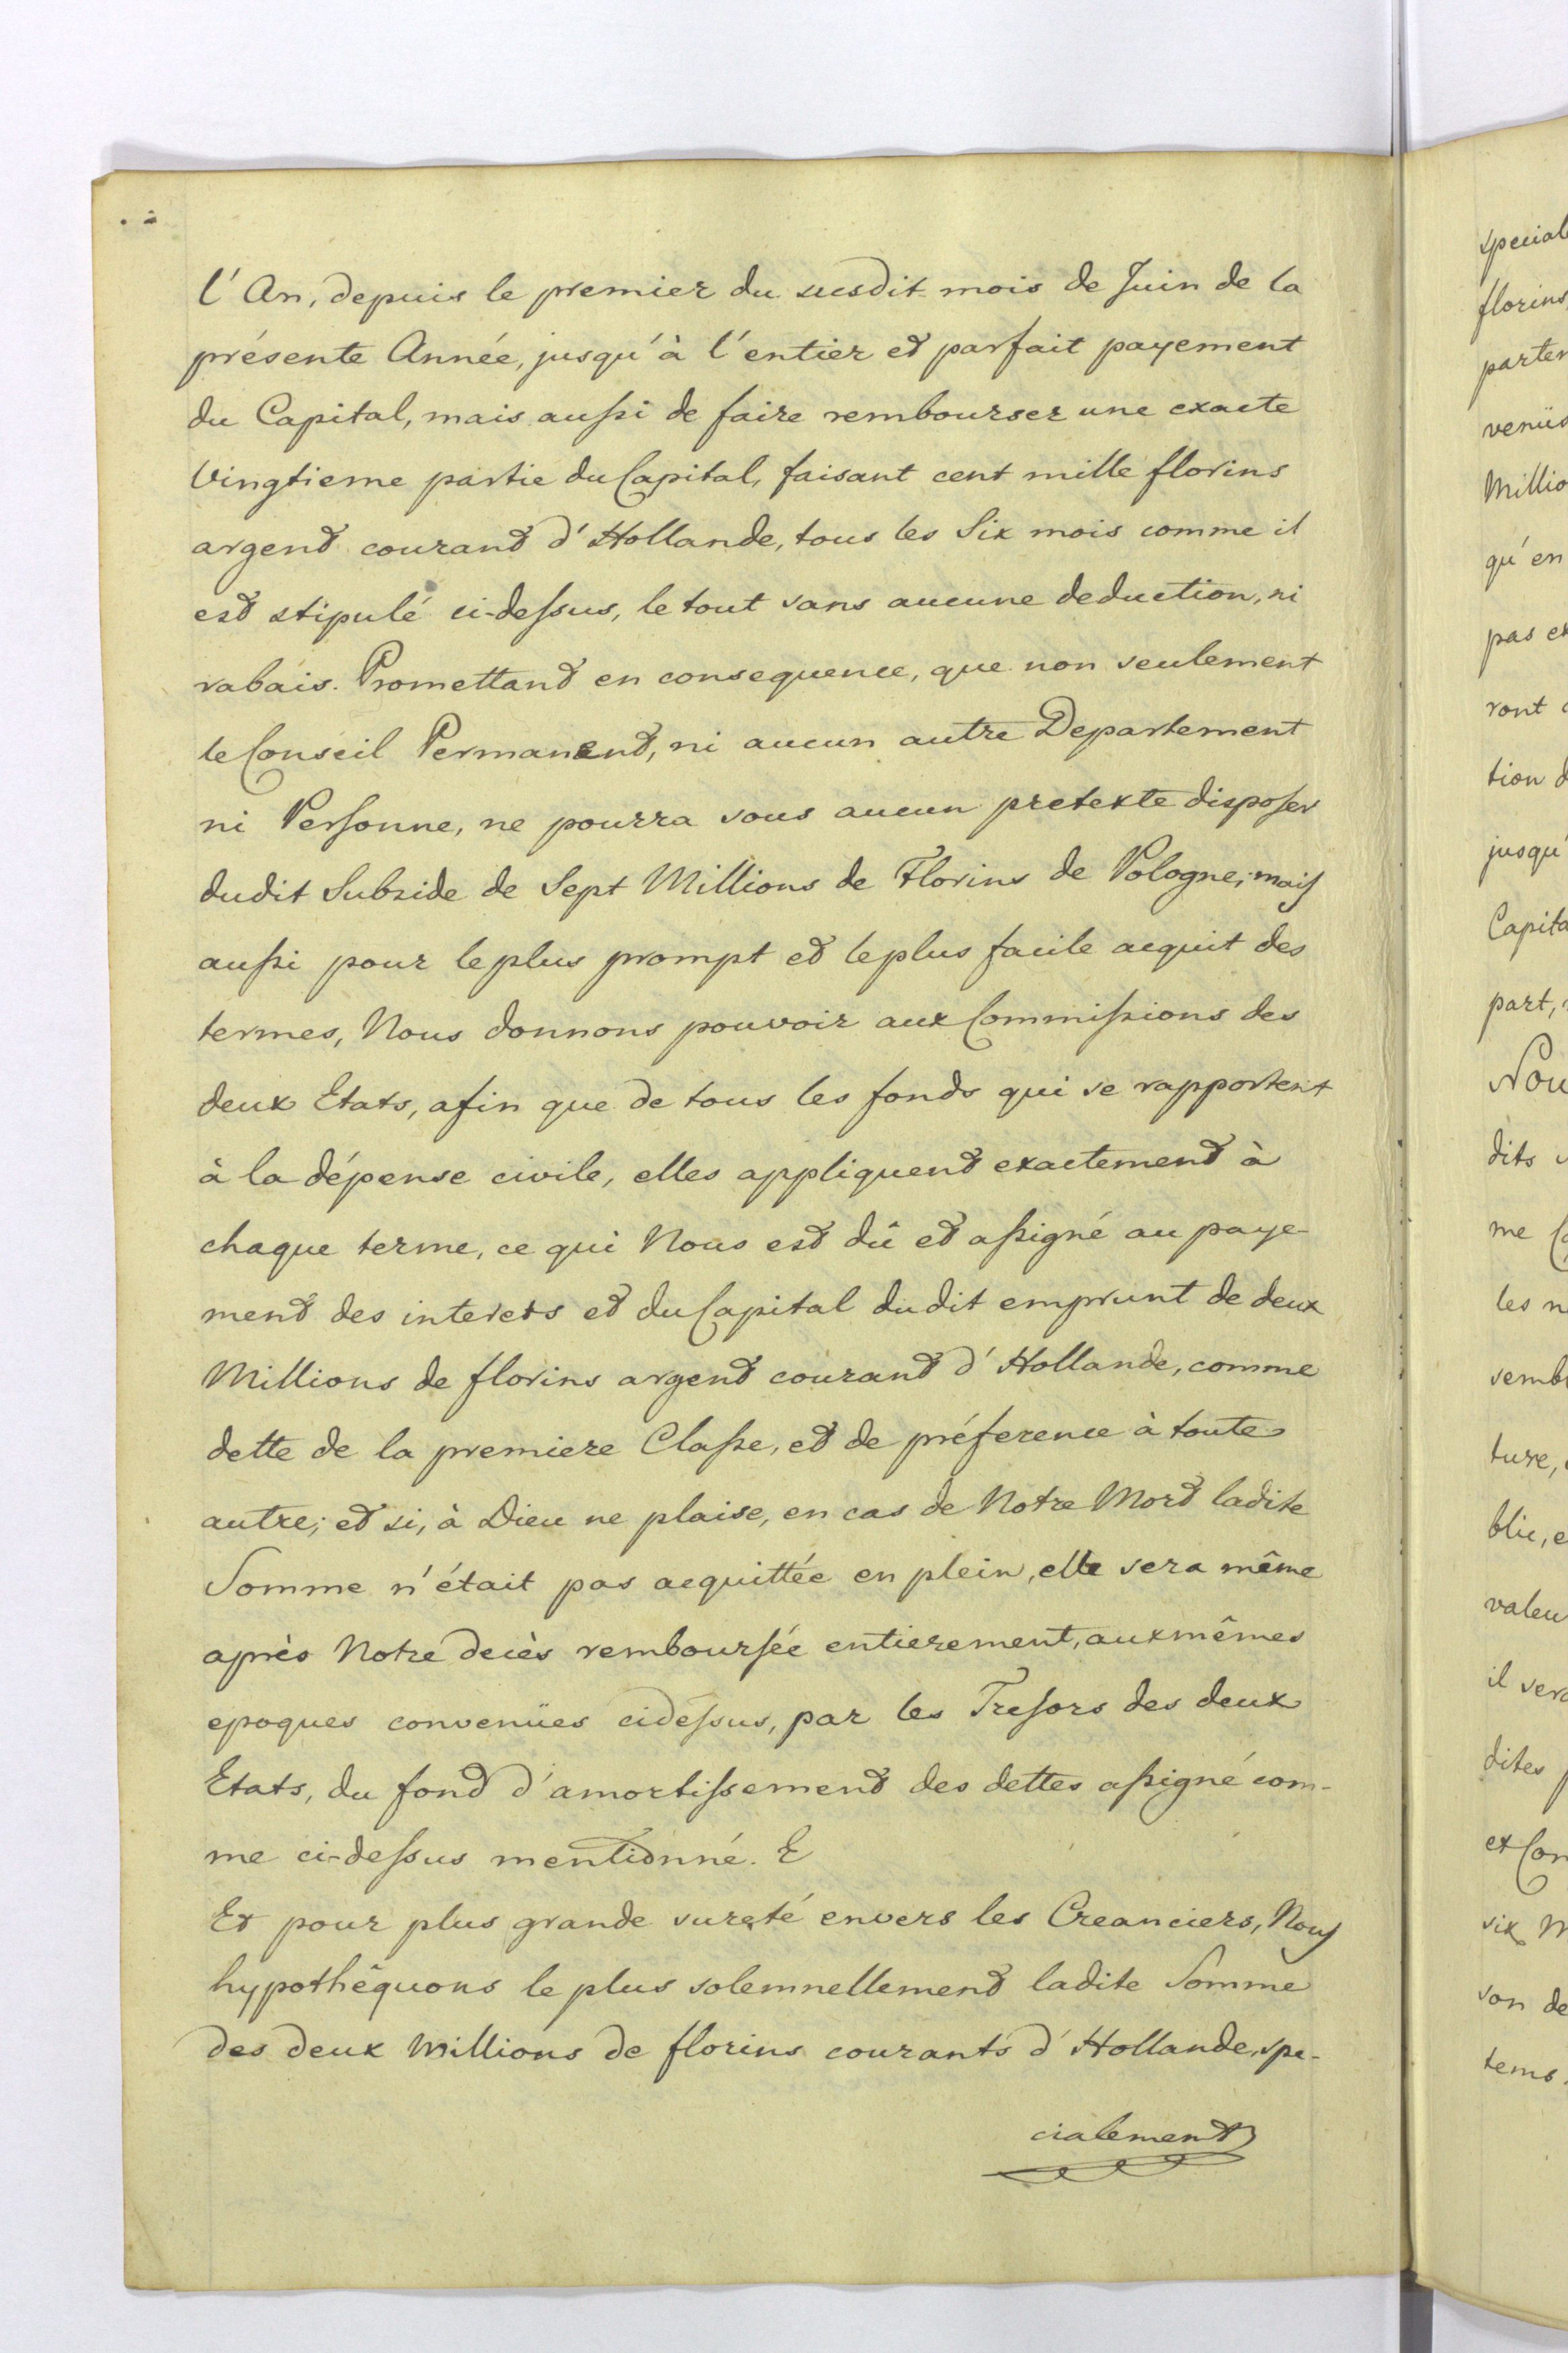 l'An, depuis le premier du susdit mois de Juin de la
présente Année, jusqu'à l'entier et parfait payement
du Capital, mais aussi de faire rembourser une exacte
Vingtieme partie du Capital, faisant cent mille florins
argent courant d'Hollande, tous les Six mois comme il
est stipulé ci-dessus, le tout sans aucune deduction, ni
rabais. Promettant en consequence, que non seulement
le Conseil Permanent, ni aucun autre Departement
ni Personne, ne pourra sous aucun pretexte disposer
dudit Subside de Sept Millions de Florins de Pologne; mais
aussi pour le plus prompt et le plus facile acquit des
termes, Nous donnons pouvoir aux Commissions des
deux Etats, afin que de tous les fonds qui se rapportent
à la dépense civile, elles appliquent exactement à
chaque terme, ce qui Nous est dû et assigné au paye-
ment des interets et du Capital dudit emprunt de deux
Millions de florins argent courant d'Hollande, comme
dette de la premiere Classe, et de préference à toute
autre; et si, à Dieu ne plaise, en cas de Notre Mort ladite
Somme n'était pas acquittée en plein, elle sera même
après Notre decès remboursée entierement, aux mêmes
epoques convenües cidessus, par les Tresors des deux
Etats, du fond d'amortissement des dettes assigné com-
me ci-dessus mentionné. E
Et pour plus grande sureté envers les Creanciers, Nous
hypothêquons le plus solemnellement ladite Somme
des deux Millions de florins courants d'Hollande, spe-
cialement
special
florins,
parten
venüs
Millio
qu'en
pas ex
ront
tion d
jusqu'
Capita
part,
Nou
dits
me
les n
semb
ture,
blic, e
valeu
il sera
dites
et Con
six M
son de
tems